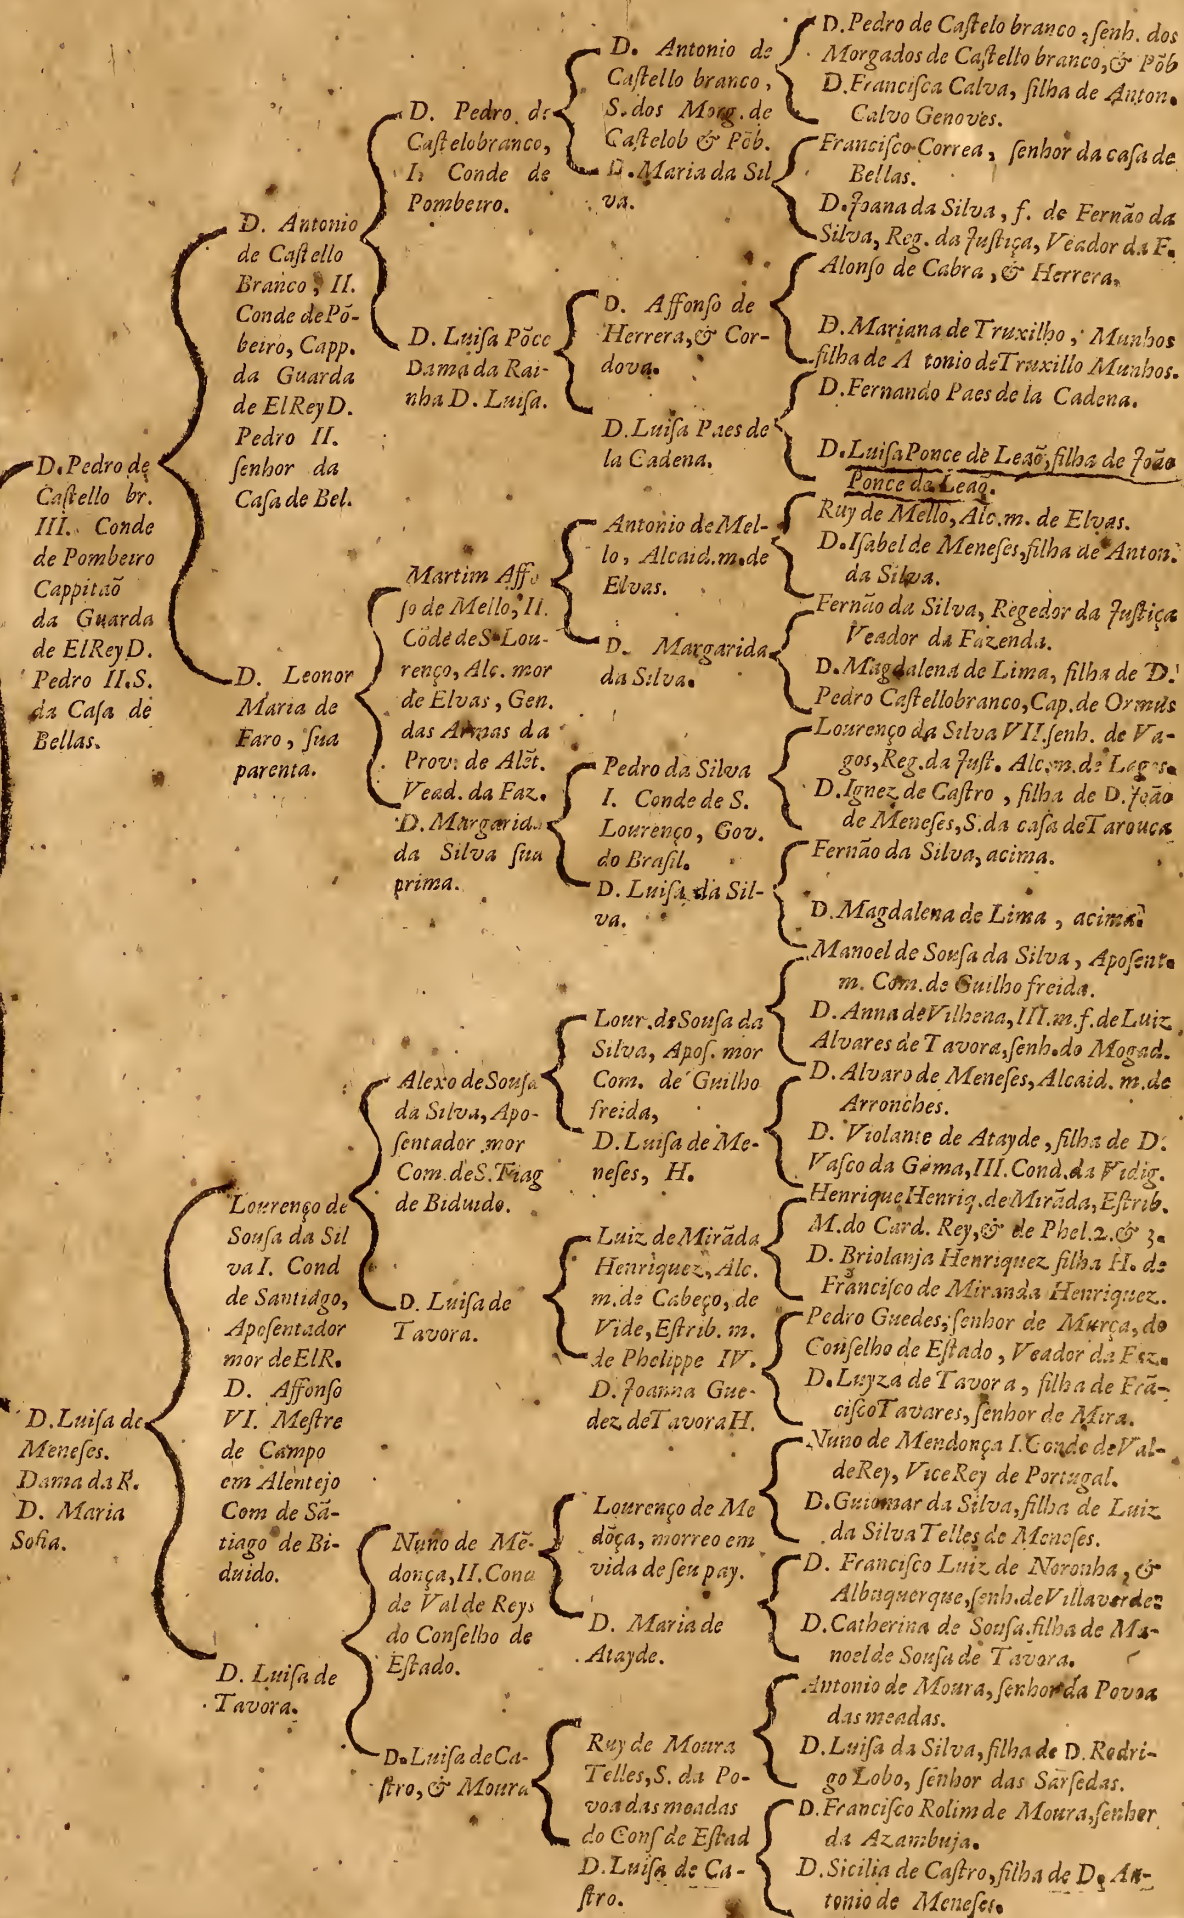 D. Pedro de
Caſtello br.
III. Conde
de Pombeiro
Cappitaõ
da Guarda
de ElRey D.
Pedro II. S.
da Caſa de
Bellas.
D. Luiſa de
Meneſes.
Dama da R.
D. Maria
Sofia.
D. Antonio
de Caſtello
Branco, II.
Conde de Põ-
beiro, Capp.
da Guarda
de ElRey D.
Pedro II.
ſenhor da
Caſa de Bel.
D. Leonor
Maria de
Faro, ſua
parenta.
Lourenço de
Souſa da Sil
va I. Cond
de Santiágo,
Apoſentador
mor de ElR.
D. Affonſo
VI. Meſtre
de Campo
em Alentejo
Com de Sã-
tiago de Bi-
duido.
D. Luiſa de
Tavora.
D. Pedro de
Caſtelobranco,
I. Conde de
Pombeiro.
D. Luiſa Põce
Dama da Rai-
nha D. Luiſa.
Martim Affo
ſo de Mello, II.
Cõde de S. Lou-
renço, Alc. mor
de Elvas, Gen.
das Armas da
Prov. de Alẽt.
Vead. da Faz.
D. Margarid.
da Silva ſua
prima.
Alexo de Souſa
da Silva, Apo-
ſentador mor
Com. de S. Tiag
de Biduido.
D. Luiſa de
Tavora.
Nuno de Mẽ-
donça, II. Cond
de Val de Reys
do Conſelho de
Eſtado.
D. Luiſa de Ca-
ſtro, & Moura
D. Antonio de
Caſtello branco,
S. dos Morg. de
Caſtelob & Põb.
D. Maria da Sil
va.
D. Affonſo de
Herrera, & Cor-
dova.
D. Luiſa Paes de
la Cadena.
Antonio de Mel-
lo, Alcaid. m. de
Elvas.
D. Margarida
da Silva.
Pedro da Silva
I. Conde de S.
Lourenço, Gov.
do Braſil.
D. Luiſa da Sil-
va.
Lour. de Souſa da
Silva, Apoſ. mor
Com. de Guilho
freida,
D. Luiſa de Me-
neſes, H.
Luiz de Mirãda
Henriquez, Alc.
m. de Cabeço, de
Vide, Eſtrib. m.
de Phelippe IV.
D. Joanna Gue-
dez de Tavora H.
Lourenço de Me
dõça, morreo em
vida de ſeu pay.
D. Maria de
Atayde.
Ruy de Moura
Telles, S. da Po-
voa das meadas
do Conſ de Eſtad
D. Luiſa de Ca-
ſtro.
D. Pedro de Caſtelo branco, ſenh. dos
Morgados de Caſtello branco, & Põb
D. Franciſca Calva, filha de Anton.
Calvo Genoves.
Franciſco Correa, ſenhor da caſa de
Bellas.
D. Joana da Silva, f. de Fernão da
Silva, Reg. da Juſtiça, Veador da F.
Alonſo de Cabra, & Herrera.
D. Mariana de Truxilho, Munhos
filha de A tonio de Truxillo Munhos.
D. Fernando Paes de la Cadena.
D. Luiſa Ponce de Leaõ, filha de João
Ponce de Leaõ.
Ruy de Mello, Alc. m. de Elvas.
D. Iſabel de Meneſes, filha de Anton.
da Silva.
Fernão da Silva, Regedor da Juſtiça
Veador da Fazenda.
D. Magdalena de Lima, filha de D.
Pedro Caſtellobranco, Cap. de Ormùs
Lourenço da Silva VII. ſenh. de Va-
gos, Reg. da Juſt. Alc. m. de Lagos.
D. Ignez de Caſtro, filha de D. João
de Meneſes, S. da caſa de Tarouca
Fernão da Silva, acima.
D. Magdalena de Lima, acima.
Manoel de Souſa da Silva, Apoſent.
m. Com. de Guilho freida.
D. Anna de Vilhena, III. m. f. de Luiz
Alvares de Tavora, ſenh. do Mogad.
D. Alvaro de Meneſes, Alcaid. m. de
Arronches.
D. Violante de Atayde, filha de D.
Vaſco da Gama, III. Cond. da Vidig.
Henrique Henriq. de Mirãda, Eſtrib.
M. do Card. Rey, & de Phel. 2. & 3.
D. Briolanja Henriquez filha H. de
Franciſco de Miranda Henriquez.
Pedro Guedes, ſenhor de Murça, do
Conſelho de Eſtado, Veador da Faz.
D. Luyza de Tavora, filha de Frã-
ciſco Tavares, ſenhor de Mira.
Nuno de Mendonça I. Conde de Val-
de Rey, ViceRey de Portugal.
D. Guiomar da Silva, filha de Luiz
da Silva Telles de Meneſes.
D. Franciſco Luiz de Noronha, &
Albuquerque, ſenh. de Villaverde.
D. Catherina de Souſa, filha de Ma-
noel de Souſa de Tavora.
Antonio de Moura, ſenhor da Povoa
das meadas.
D. Luiſa da Silva, filha de D. Rodri-
go Lobo, ſenhor das Sarſedas.
D. Franciſco Rolim de Moura, ſenhor
da Azambuja.
D. Sicilia de Caſtro, filha de D. An-
tonio de Meneſes.